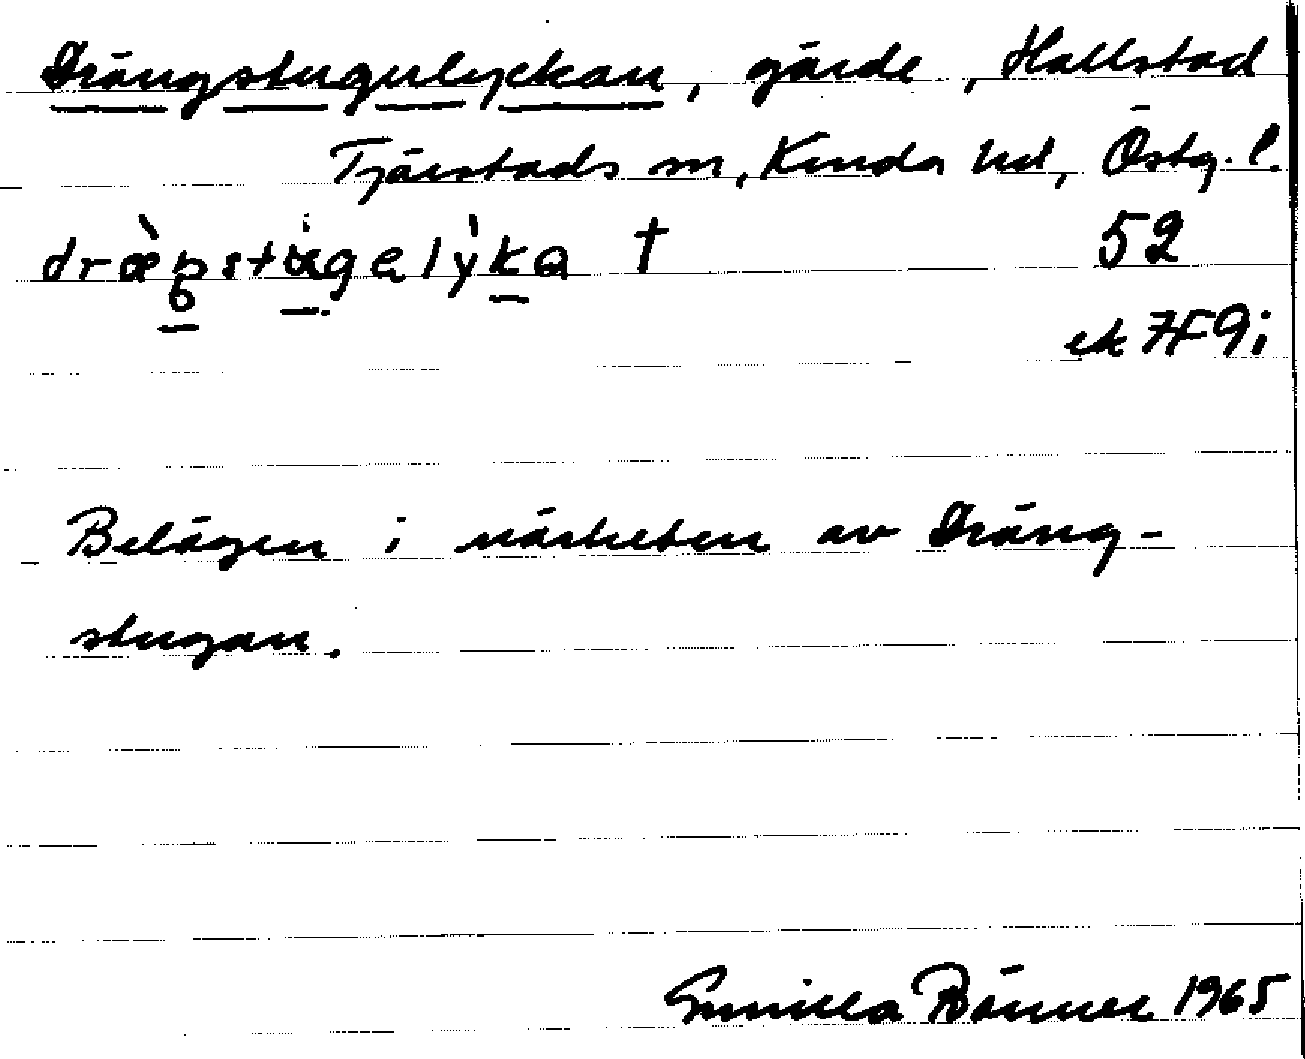 Drängstugulyckan, gärde, Hallstad
Tjärstads sn, Kinda hd, Östg. l.
dræ̀ŋstùgelỳka † 52
ek 7F9i
Belägen i närheten av Dräng-
stugan.
Gunilla Rönner 1965